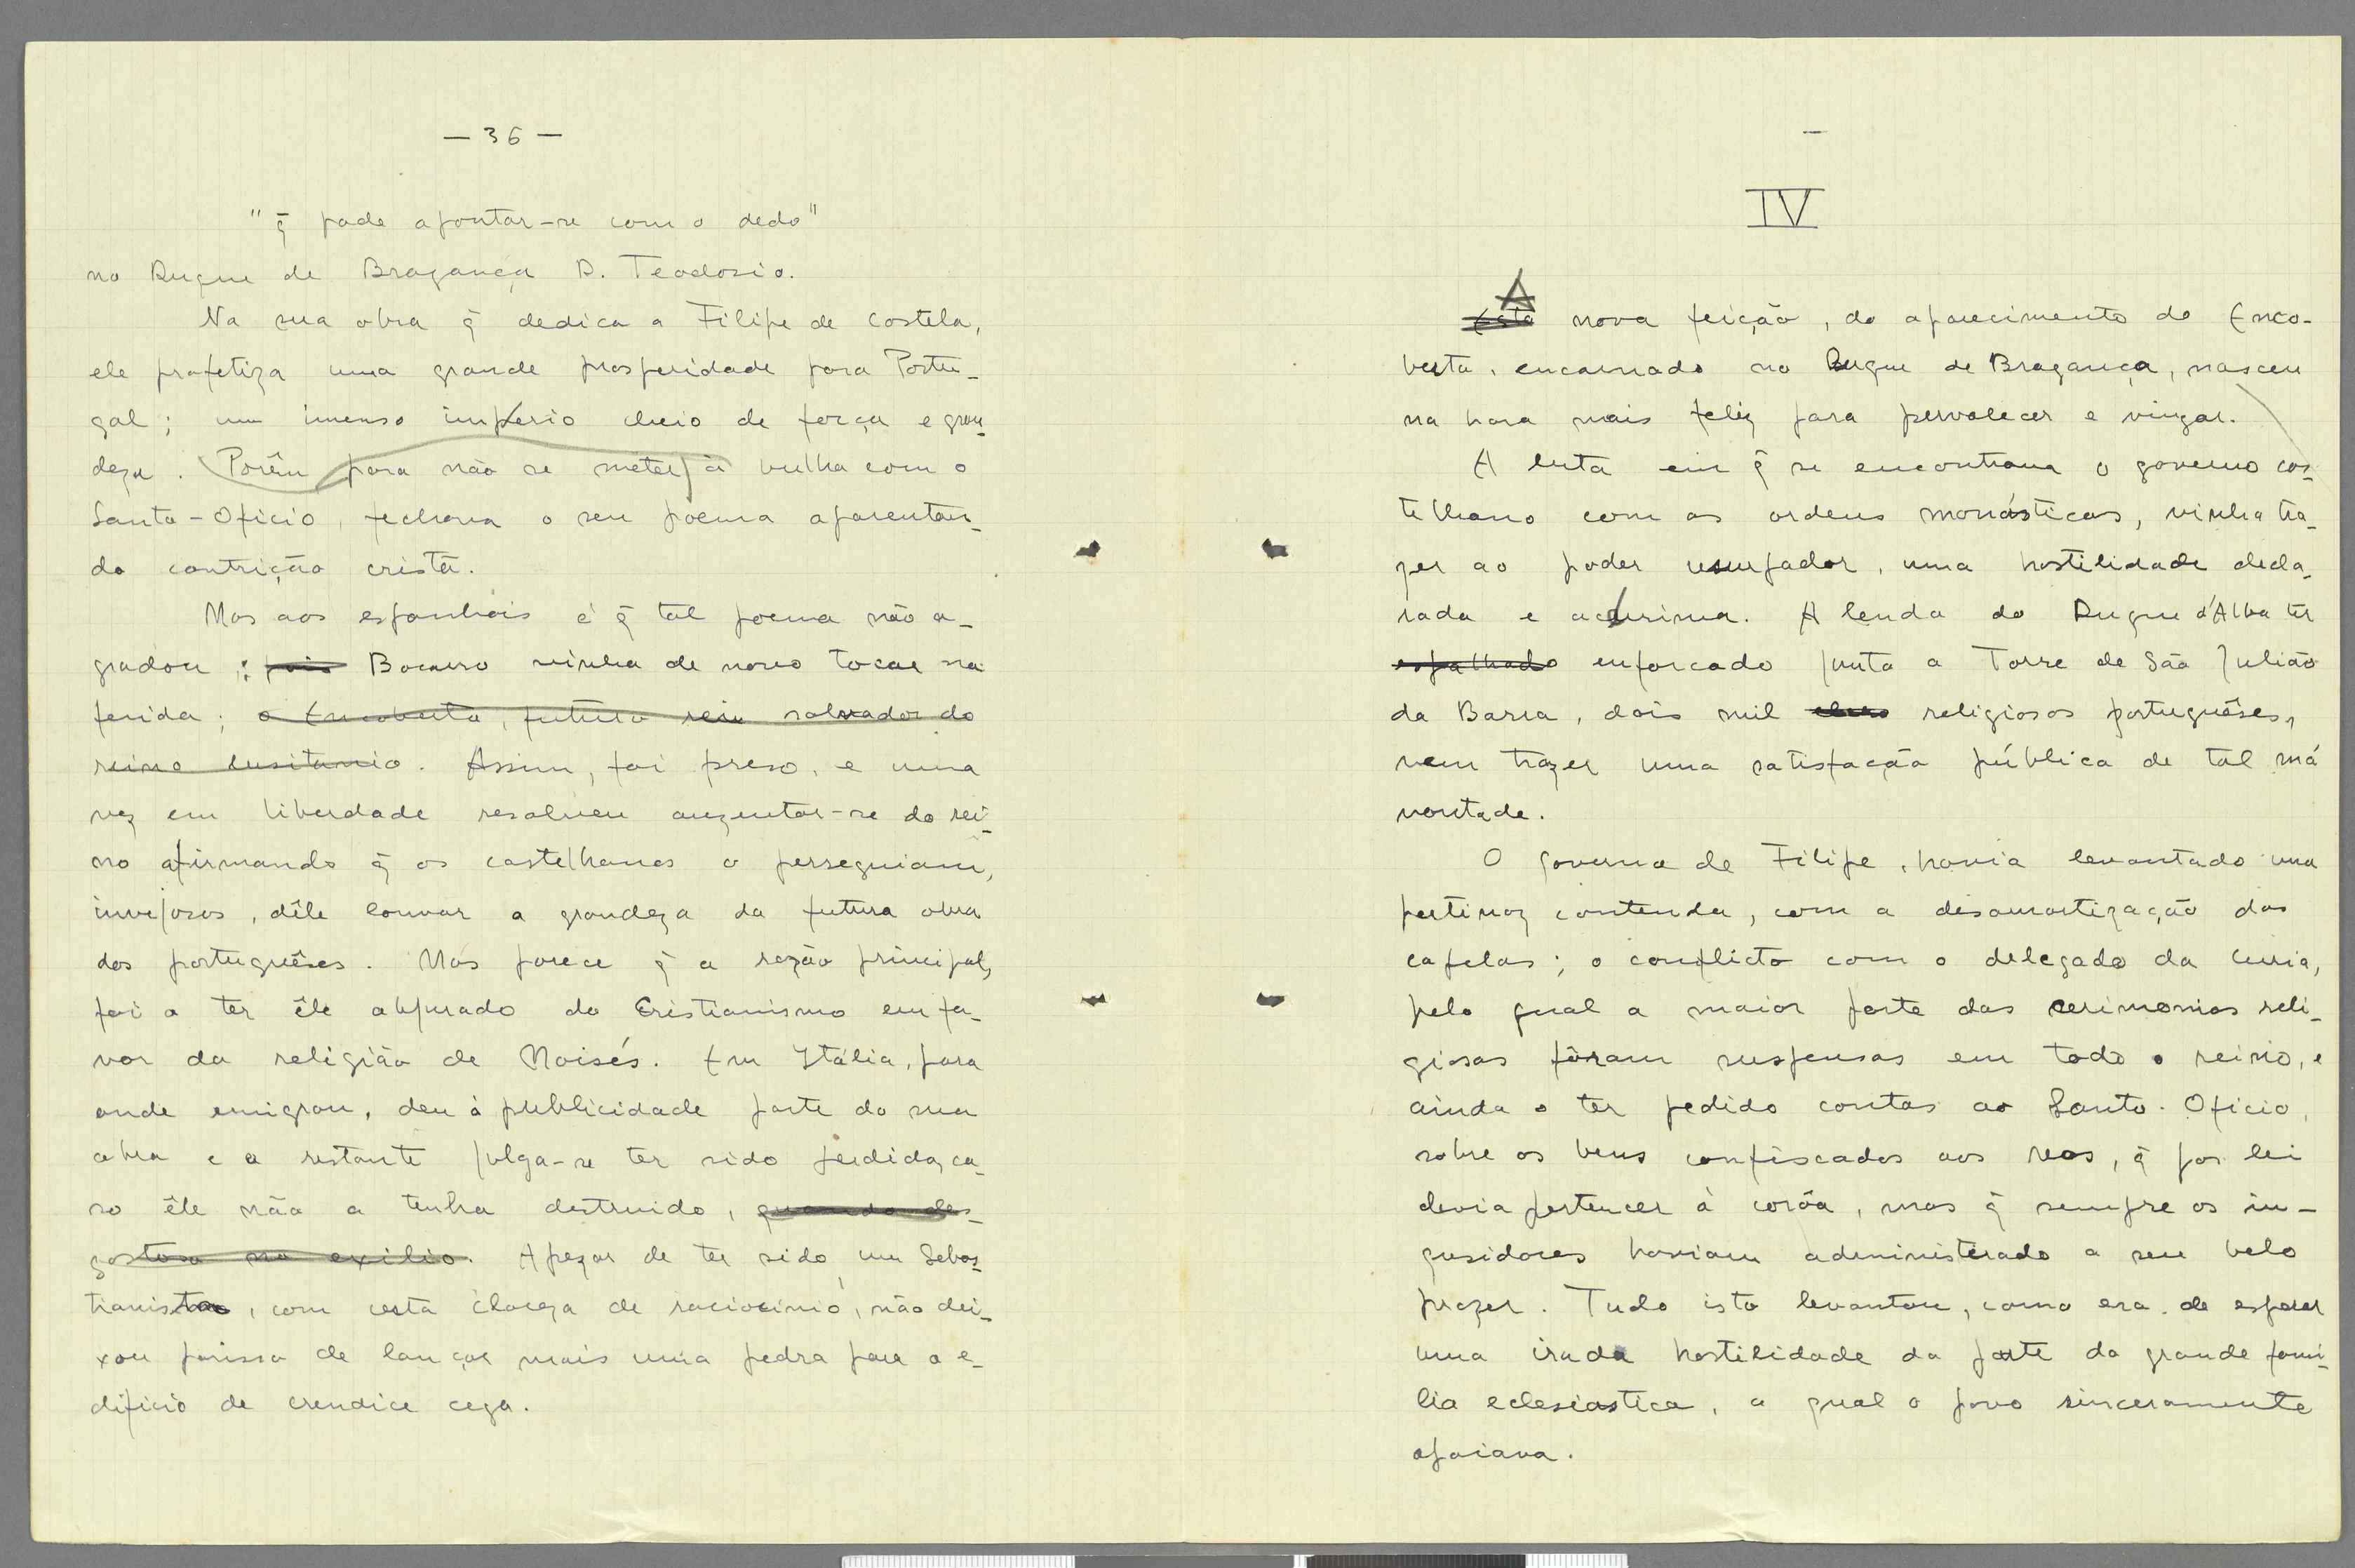 — 36 —
"q̃ pode apontar-se com o dedo"
no Duque de Bragança D. Teodosio.
Na sua obra q̃ dedica a Filipe de Castela,
ele profetiza uma grande prosperidade para Portu-
gal; um imenso império cheio de força e gran-
deza. Porêm para não se meter á bulha com o
Santo-Oficio, fechava o seu poema aparentan-
do contrição cristã.
Mas aos espanhois é q̃ tal poema não a-
gradou; pois Bocarro vinha de novo tocar na
ferida; o Encoberto, futuro rei salvador do
reino lusitanio. Assim, foi preso, e uma
vez em liberdade resolveu auzentar-se do rei-
no afirmando q̃ os castelhanos o perseguiam,
invejosos, dêle louvar a grandeza da futura obra
dos portuguêses. Mas parece q̃ a razão principal,
foi o ter êle abjurado do Cristianismo em fa-
vor da religião de Moisés. Em Itália, para
onde emigrou, deu á publicidade parte da sua
obra e a restante julga-se ter sido perdida, ca-
so êle não a tenha destruido, quando des-
gostoso no exilio. Apezar de ter sido um Sebas-
tianista, com certa clareza de raciocinio, não dei-
xou porisso de lançar mais uma pedra para o e-
dificio de crendice cega.
IV
Esta A nova feição, do aparecimento do Enco-
berto, encarnado no Duque de Bragança, nasceu
na hora mais feliz para pervalecer e vingar.
A luta em q̃ se encontrava o governo cas-
telhano com as ordens monásticas, vinha tra-
zer ao poder usurpador, uma hostilidade decla-
rada e acerrima. A lenda do Duque d'Alba ter
espalhado enforcado junto a Torre de São Julião
da Barra, dois mil religiosos portuguêses,
vem trazer uma satisfação pública de tal má
vontade.
O governo de Filipe, havia levantado uma
pertinaz contenda, com a desamortização das
capelas; o conflicto com o delegado da Curia,
pelo qual a maior parte das cerimonias reli-
giosas fôram suspensas em todo o reino, e
ainda o ter pedido contas ao Santo-Oficio,
sobre os bens confiscados aos reos, q̃ por lei
devia pertencer á corôa, mas q̃ sempre os in-
quisidores haviam administrado a seu belo
prazer. Tudo isto levantou, como era de esperar
uma irada hostilidade da parte da grande fami-
lia eclesiastica, a qual o povo sinceramente
apoiava.